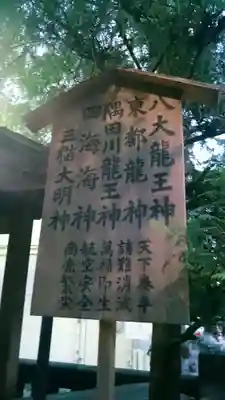 八大龍王神
東都龍神
隅田川龍王神
四海海神
三稲大明神
天下泰平
諸難消滅
萬福即生
航空安全
商業繁栄